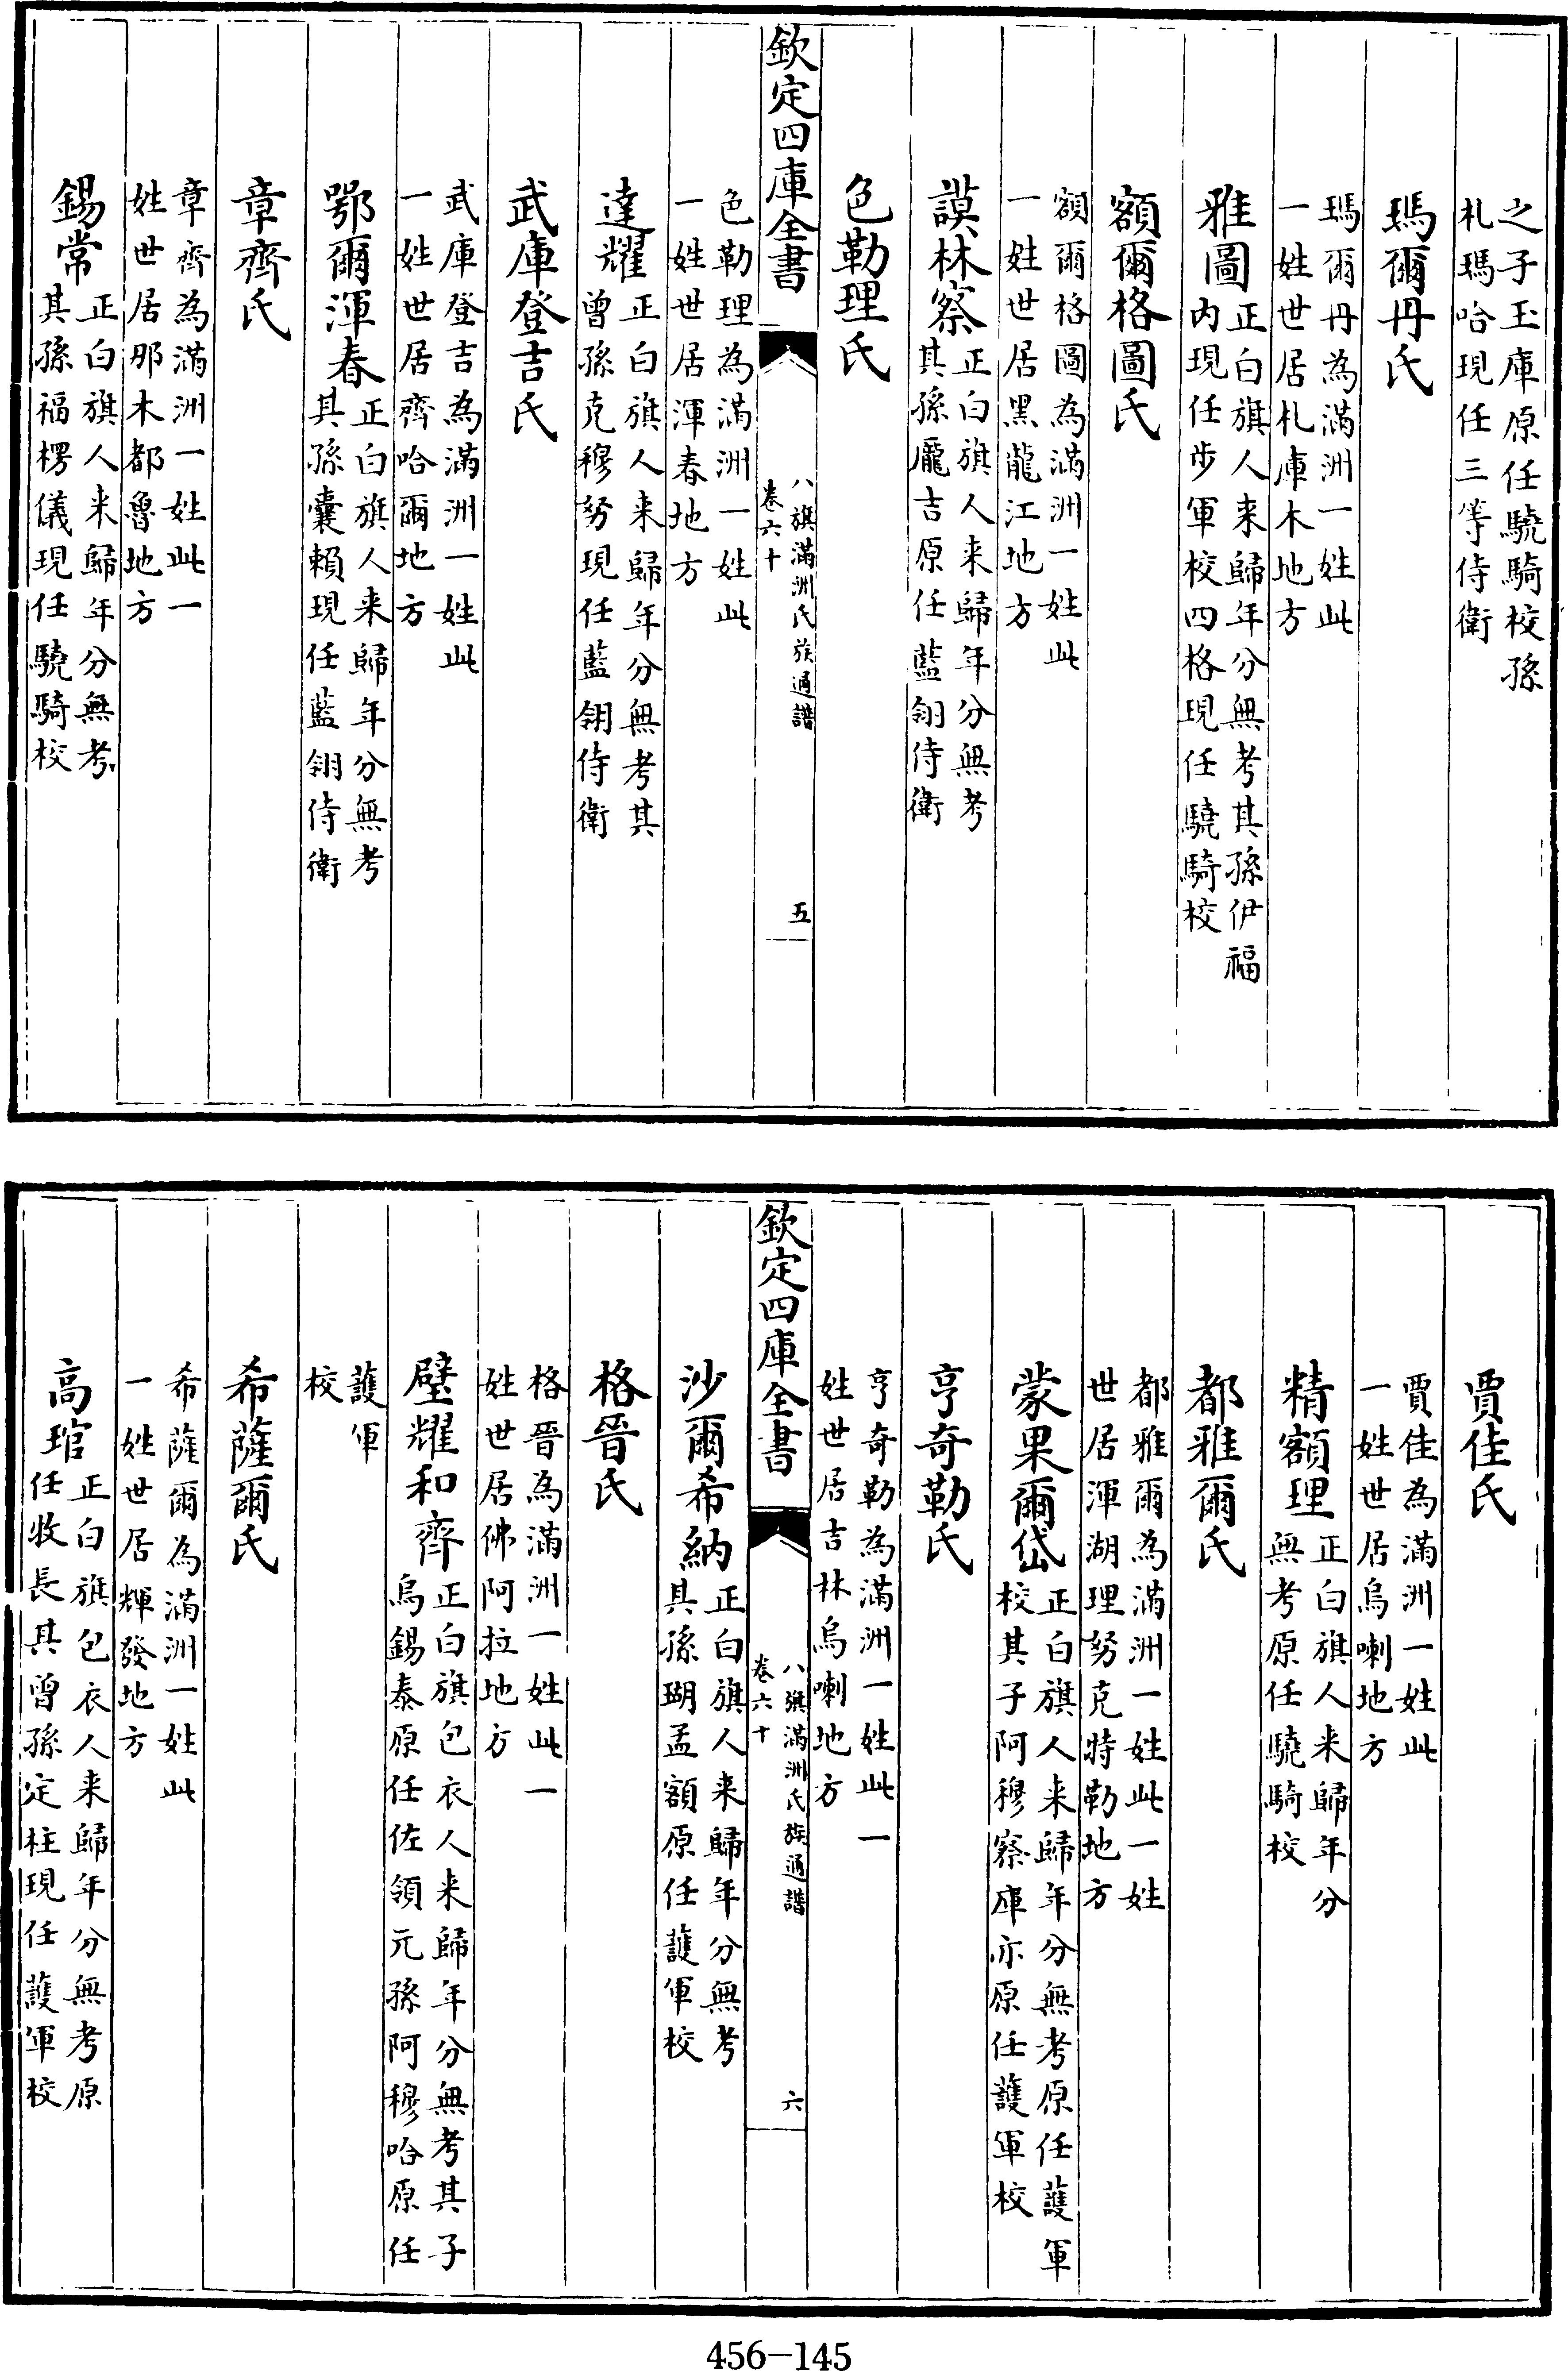 之子玉庫原任驍騎校孫
札瑪哈現任三等侍衛
瑪爾丹氏
瑪爾丹為滿洲一姓此
一姓世居札庫木地方
雅圖
正白旗人来歸年分無考其孫伊福
内現任步軍校四格現任驍騎校
額爾格圖氏
額爾格圖為滿洲一姓此
一姓世居黑龍江地方
謨林察
正白旗人来歸年分無考
其孫龎吉原任藍翎侍衛
色勒理氏
欽定四庫全書
八旗滿洲氏族通譜
卷六十
五
色勒理為滿洲一姓此
一姓世居渾春地方
達耀
正白旗人来歸年分無考其
曾孫克穆努現任藍翎侍衛
武庫登吉氏
武庫登吉為滿洲一姓此
一姓世居齊哈爾地方
鄂爾渾春
正白旗人来歸年分無考
其孫囊賴現任藍翎侍衛
章齊氏
章齊為滿洲一姓此一
姓世居那木都魯地方
錫常
正白旗人来歸年分無考
其孫福楞儀現任驍騎校
賈佳氏
賈佳為滿洲一姓此
一姓世居烏喇地方
精額理
正白旗人来歸年分
無考原任驍騎校
都雅爾氏
都雅爾為滿洲一姓此一姓
世居渾湖理努克特勒地方
蒙果爾岱
正白旗人来歸年分無考原任護軍
校其子阿穆察庫亦原任護軍校
亨奇勒氏
亨奇勒為滿洲一姓此一
姓世居吉林烏喇地方
欽定四庫全書
八旗滿洲氏族通譜
卷六十
六
沙爾希納
正白旗人来歸年分無考
其孫瑚孟額原任護軍校
格晉氏
格晉為滿洲一姓此一
姓世居佛阿拉地方
璧耀和齊
正白旗包衣人来歸年分無考其子
烏錫泰原任佐領元孫阿穆哈原任
護軍
校
希薩爾氏
希薩爾為滿洲一姓此
一姓世居輝發地方
高琯
正白旗包衣人来歸年分無考原
任牧長其曾孫定柱現任護軍校
456-145